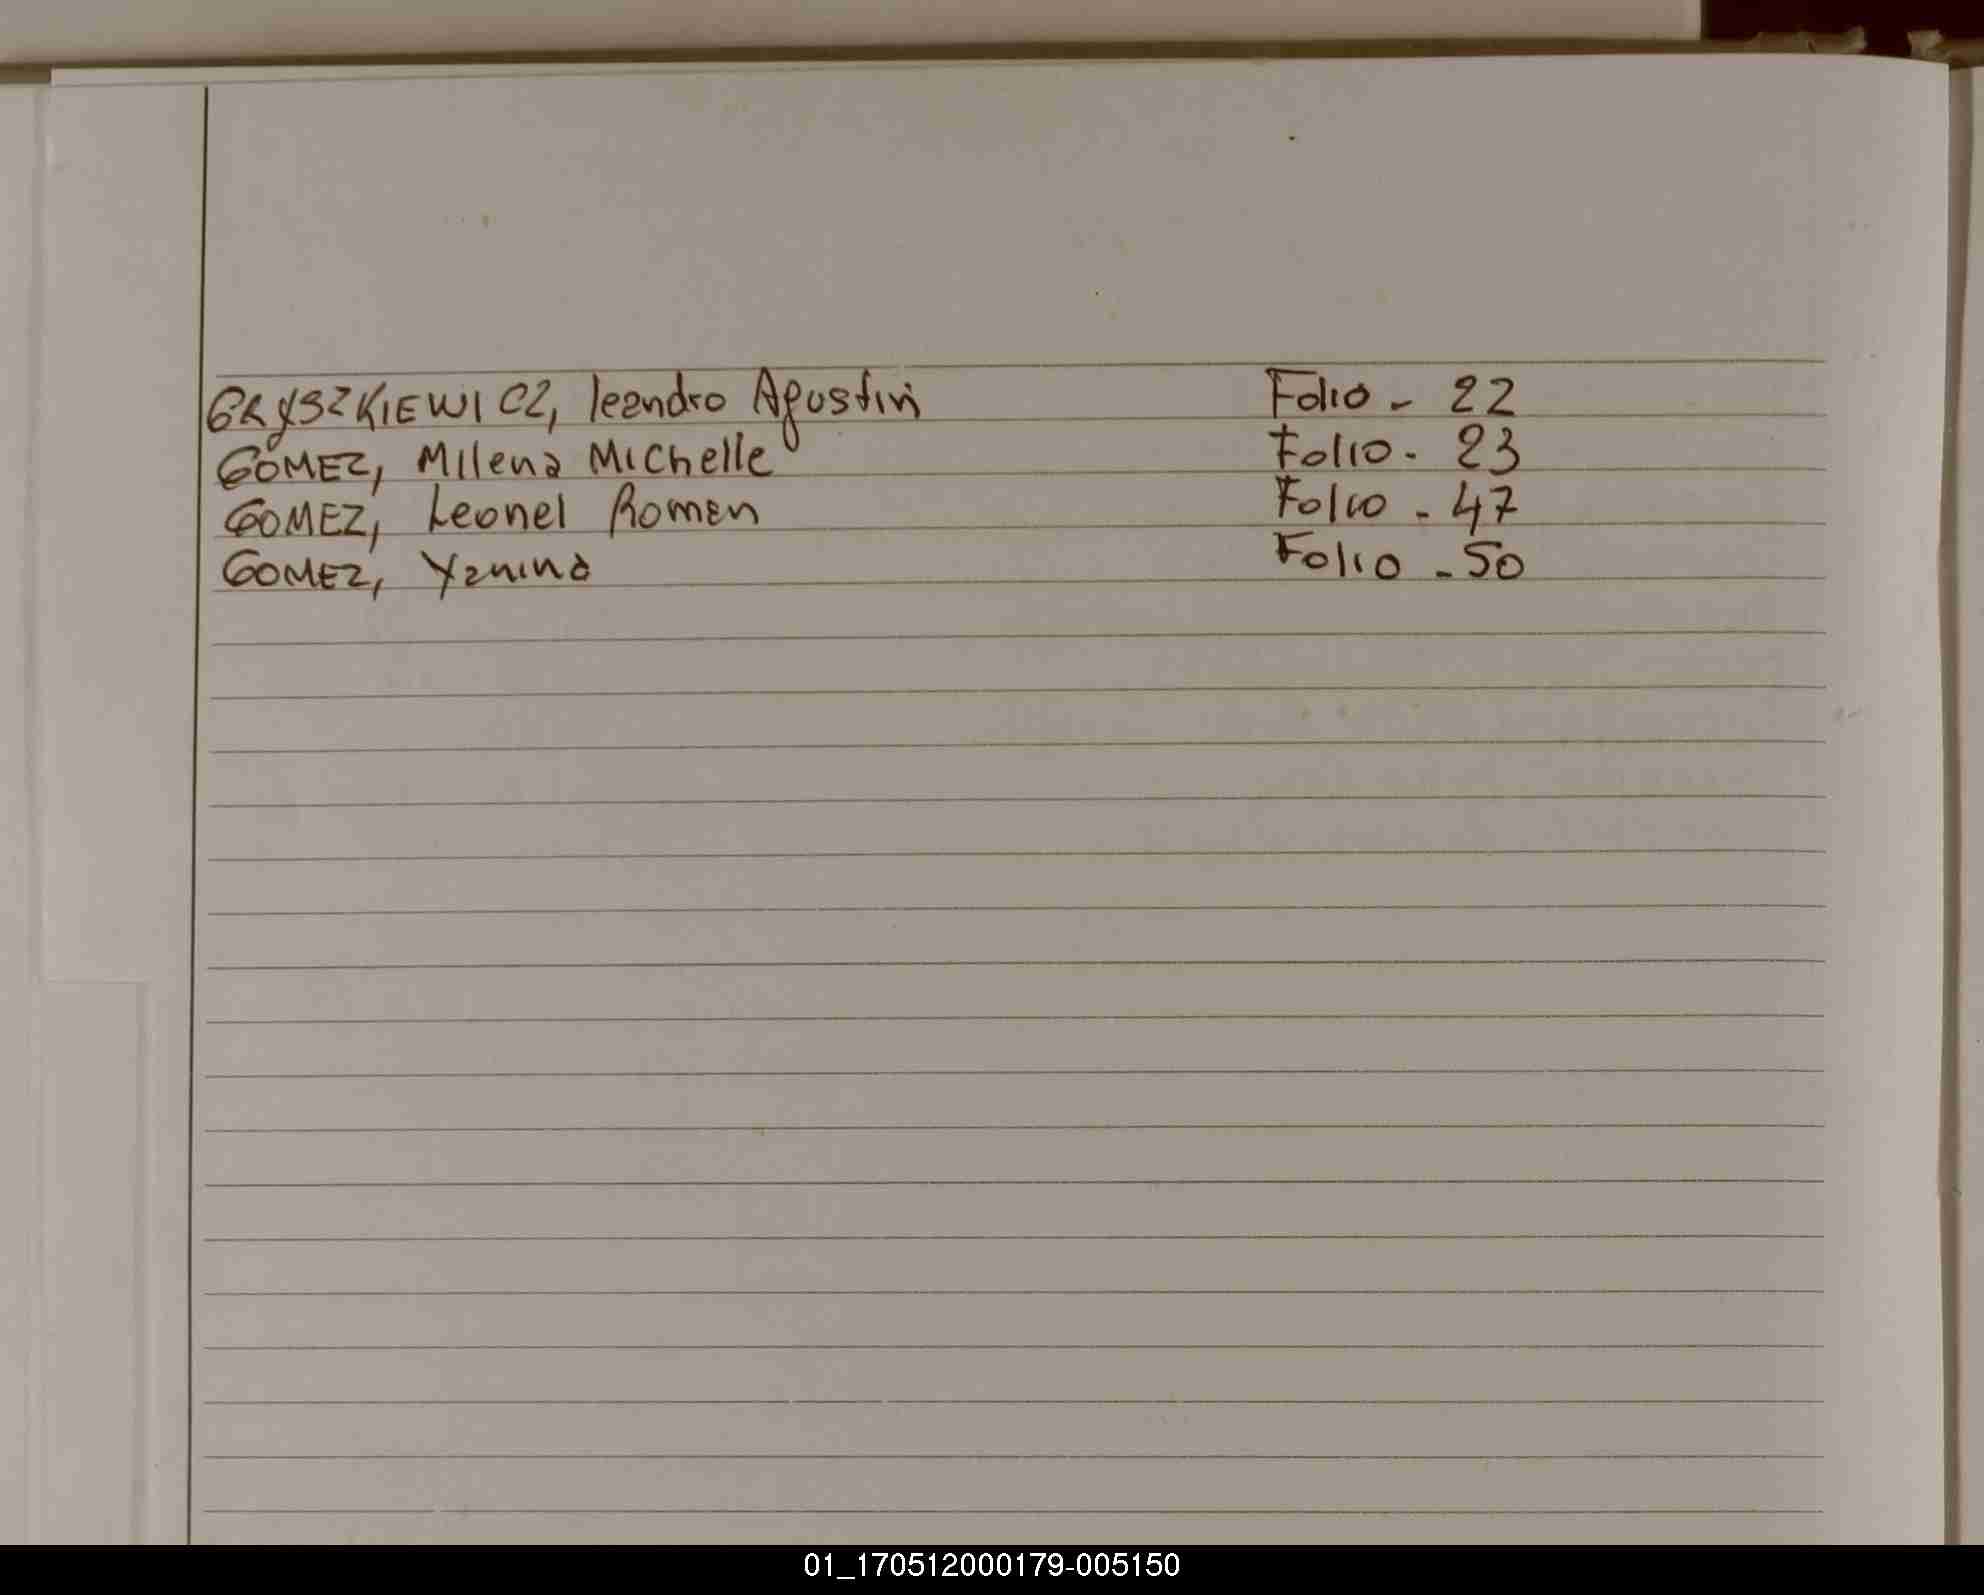 GRYSZKIEWICZ, Leandro Agustin Folio - 22
GOMEZ, Milena Michelle Folio - 23
GOMEZ, Leonel Roman Folio - 47
GOMEZ, Yanina Folio - 50
01_170512000179-005150